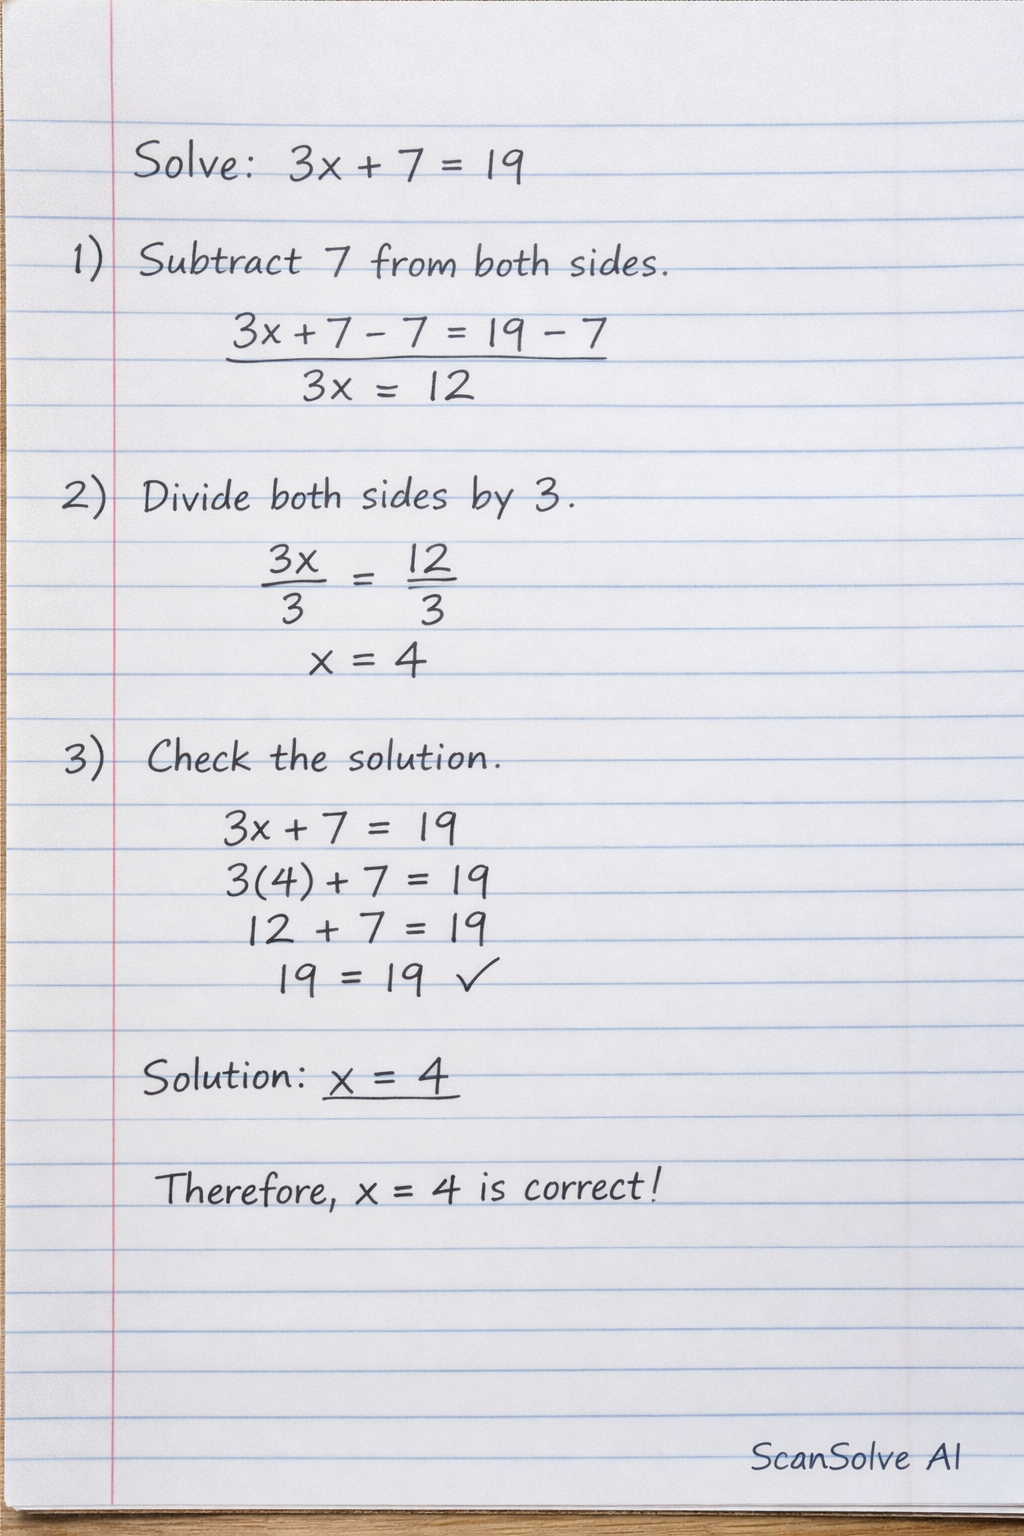 Solve: 3x + 7 = 19
1) Subtract 7 from both sides.
3x + 7 - 7 = 19 - 7
3x = 12
2) Divide both sides by 3.
3x/3 = 12/3
x = 4
3) Check the solution.
3x + 7 = 19
3(4) + 7 = 19
12 + 7 = 19
19 = 19 ✓
Solution: x = 4
Therefore, x = 4 is correct!
ScanSolve AI